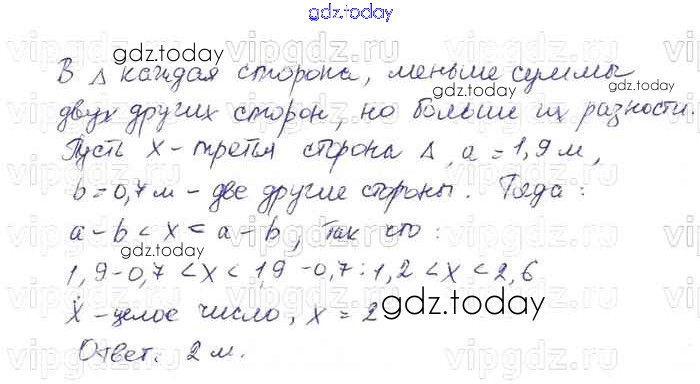 gdz.today
gdz.today
В Δ каждая сторона, меньше суммы
gdz.today
двух других сторон, но больше их разности.
Пусть x - третья сторона Δ, a = 1,9 м,
b = 0,7 м - две другие стороны. Тогда:
a - b < x < a - b, так что:
gdz.today
1,9 - 0,7 < x < 1,9 - 0,7 : 1,2 < x < 2,6
x - целое число, x = 2
gdz.today
Ответ. 2 м.